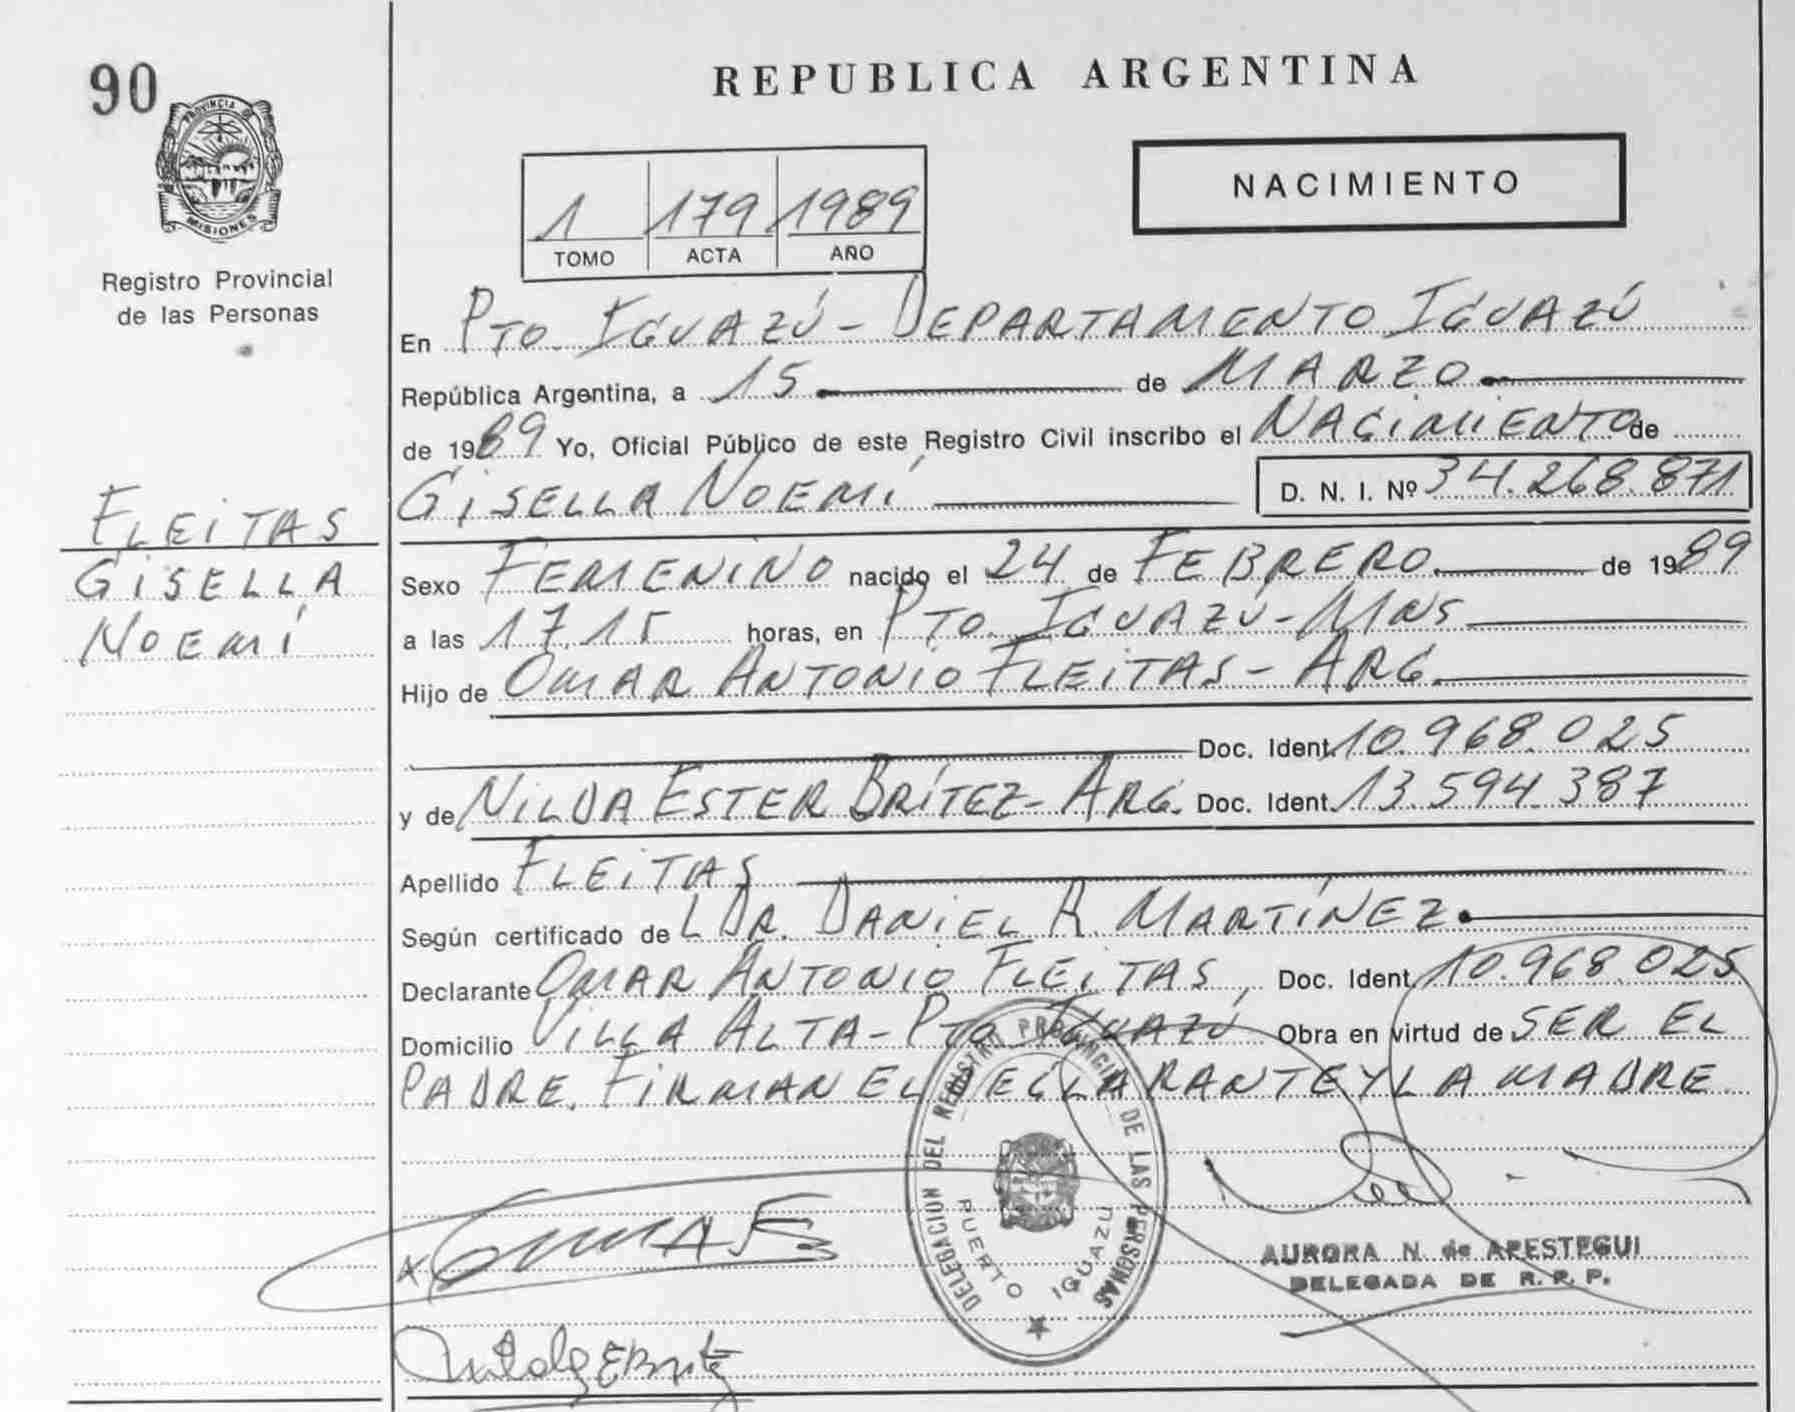 90
PROVINCIA DE
MISIONES
Registro Provincial
de las Personas
FLEITAS
GISELLA
NOEMÍ
REPUBLICA ARGENTINA
1 179 1989
TOMO ACTA AÑO
NACIMIENTO
En PTO. IGUAZÚ - DEPARTAMENTO IGUAZÚ
República Argentina, a 15 de MARZO
de 1989 Yo, Oficial Público de este Registro Civil inscribo el NACIMIENTO de
GISELLA NOEMÍ D. N. I. Nº 34.268.871
Sexo FEMENINO nacido el 24 de FEBRERO de 1989
a las 17,15 horas, en PTO. IGUAZÚ - MNS
Hijo de OMAR ANTONIO FLEITAS - ARG.
Doc. Ident. 10.968.025
y de NILDA ESTER BRÍTEZ - ARG. Doc. Ident. 13.594.387
Apellido FLEITAS
Según certificado de L DR. DANIEL R. MARTÍNEZ
Declarante OMAR ANTONIO FLEITAS, Doc. Ident. 10.968.025
Domicilio VILLA ALTA - PTO. IGUAZÚ Obra en virtud de SER EL
PADRE. FIRMAN EL DECLARANTE Y LA MADRE
DELEGACION DEL REGISTRO PROVINCIAL DE LAS PERSONAS
PUERTO IGUAZU
AURORA N. de APESTEGUI
DELEGADA DE R. P. P.